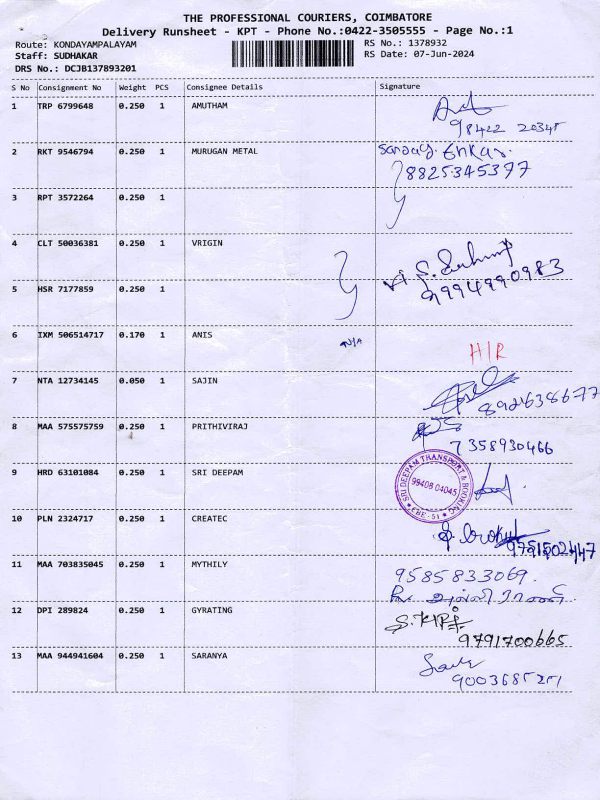 THE PROFESSIONAL COURIERS, COIMBATORE
Delivery Runsheet - KPT - Phone No.:0422-3505555 - Page No.:1
Route: KONDAYAMPALAYAM
Staff: SUDHAKAR
DRS No.: DCJB137893201
RS No.: 1378932
RS Date: 07-Jun-2024
S No Consignment No Weight PCS Consignee Details Signature
1 TRP 6799648 0.250 1 AMUTHAM
98422 20345
2 RKT 9546794 0.250 1 MURUGAN METAL
8825345377
3 RPT 3572264 0.250 1
4 CLT 50036381 0.250 1 VRIGIN
9994990983
5 HSR 7177859 0.250 1
6 IXM 506514717 0.170 1 ANIS N/A H/R
7 NTA 12734145 0.050 1 SAJIN
8921638677
8 MAA 575575759 0.250 1 PRITHIVIRAJ
7358930466
9 HRD 63101084 0.250 1 SRI DEEPAM
SRI DEEPAM TRANSPORT & BOOKING
98408 04045
CBE - 51
10 PLN 2324717 0.250 1 CREATEC
9791502447
11 MAA 703835045 0.250 1 MYTHILY
9585833069.
12 DPI 289824 0.250 1 GYRATING
9791700665
13 MAA 944941604 0.250 1 SARANYA
9003685251